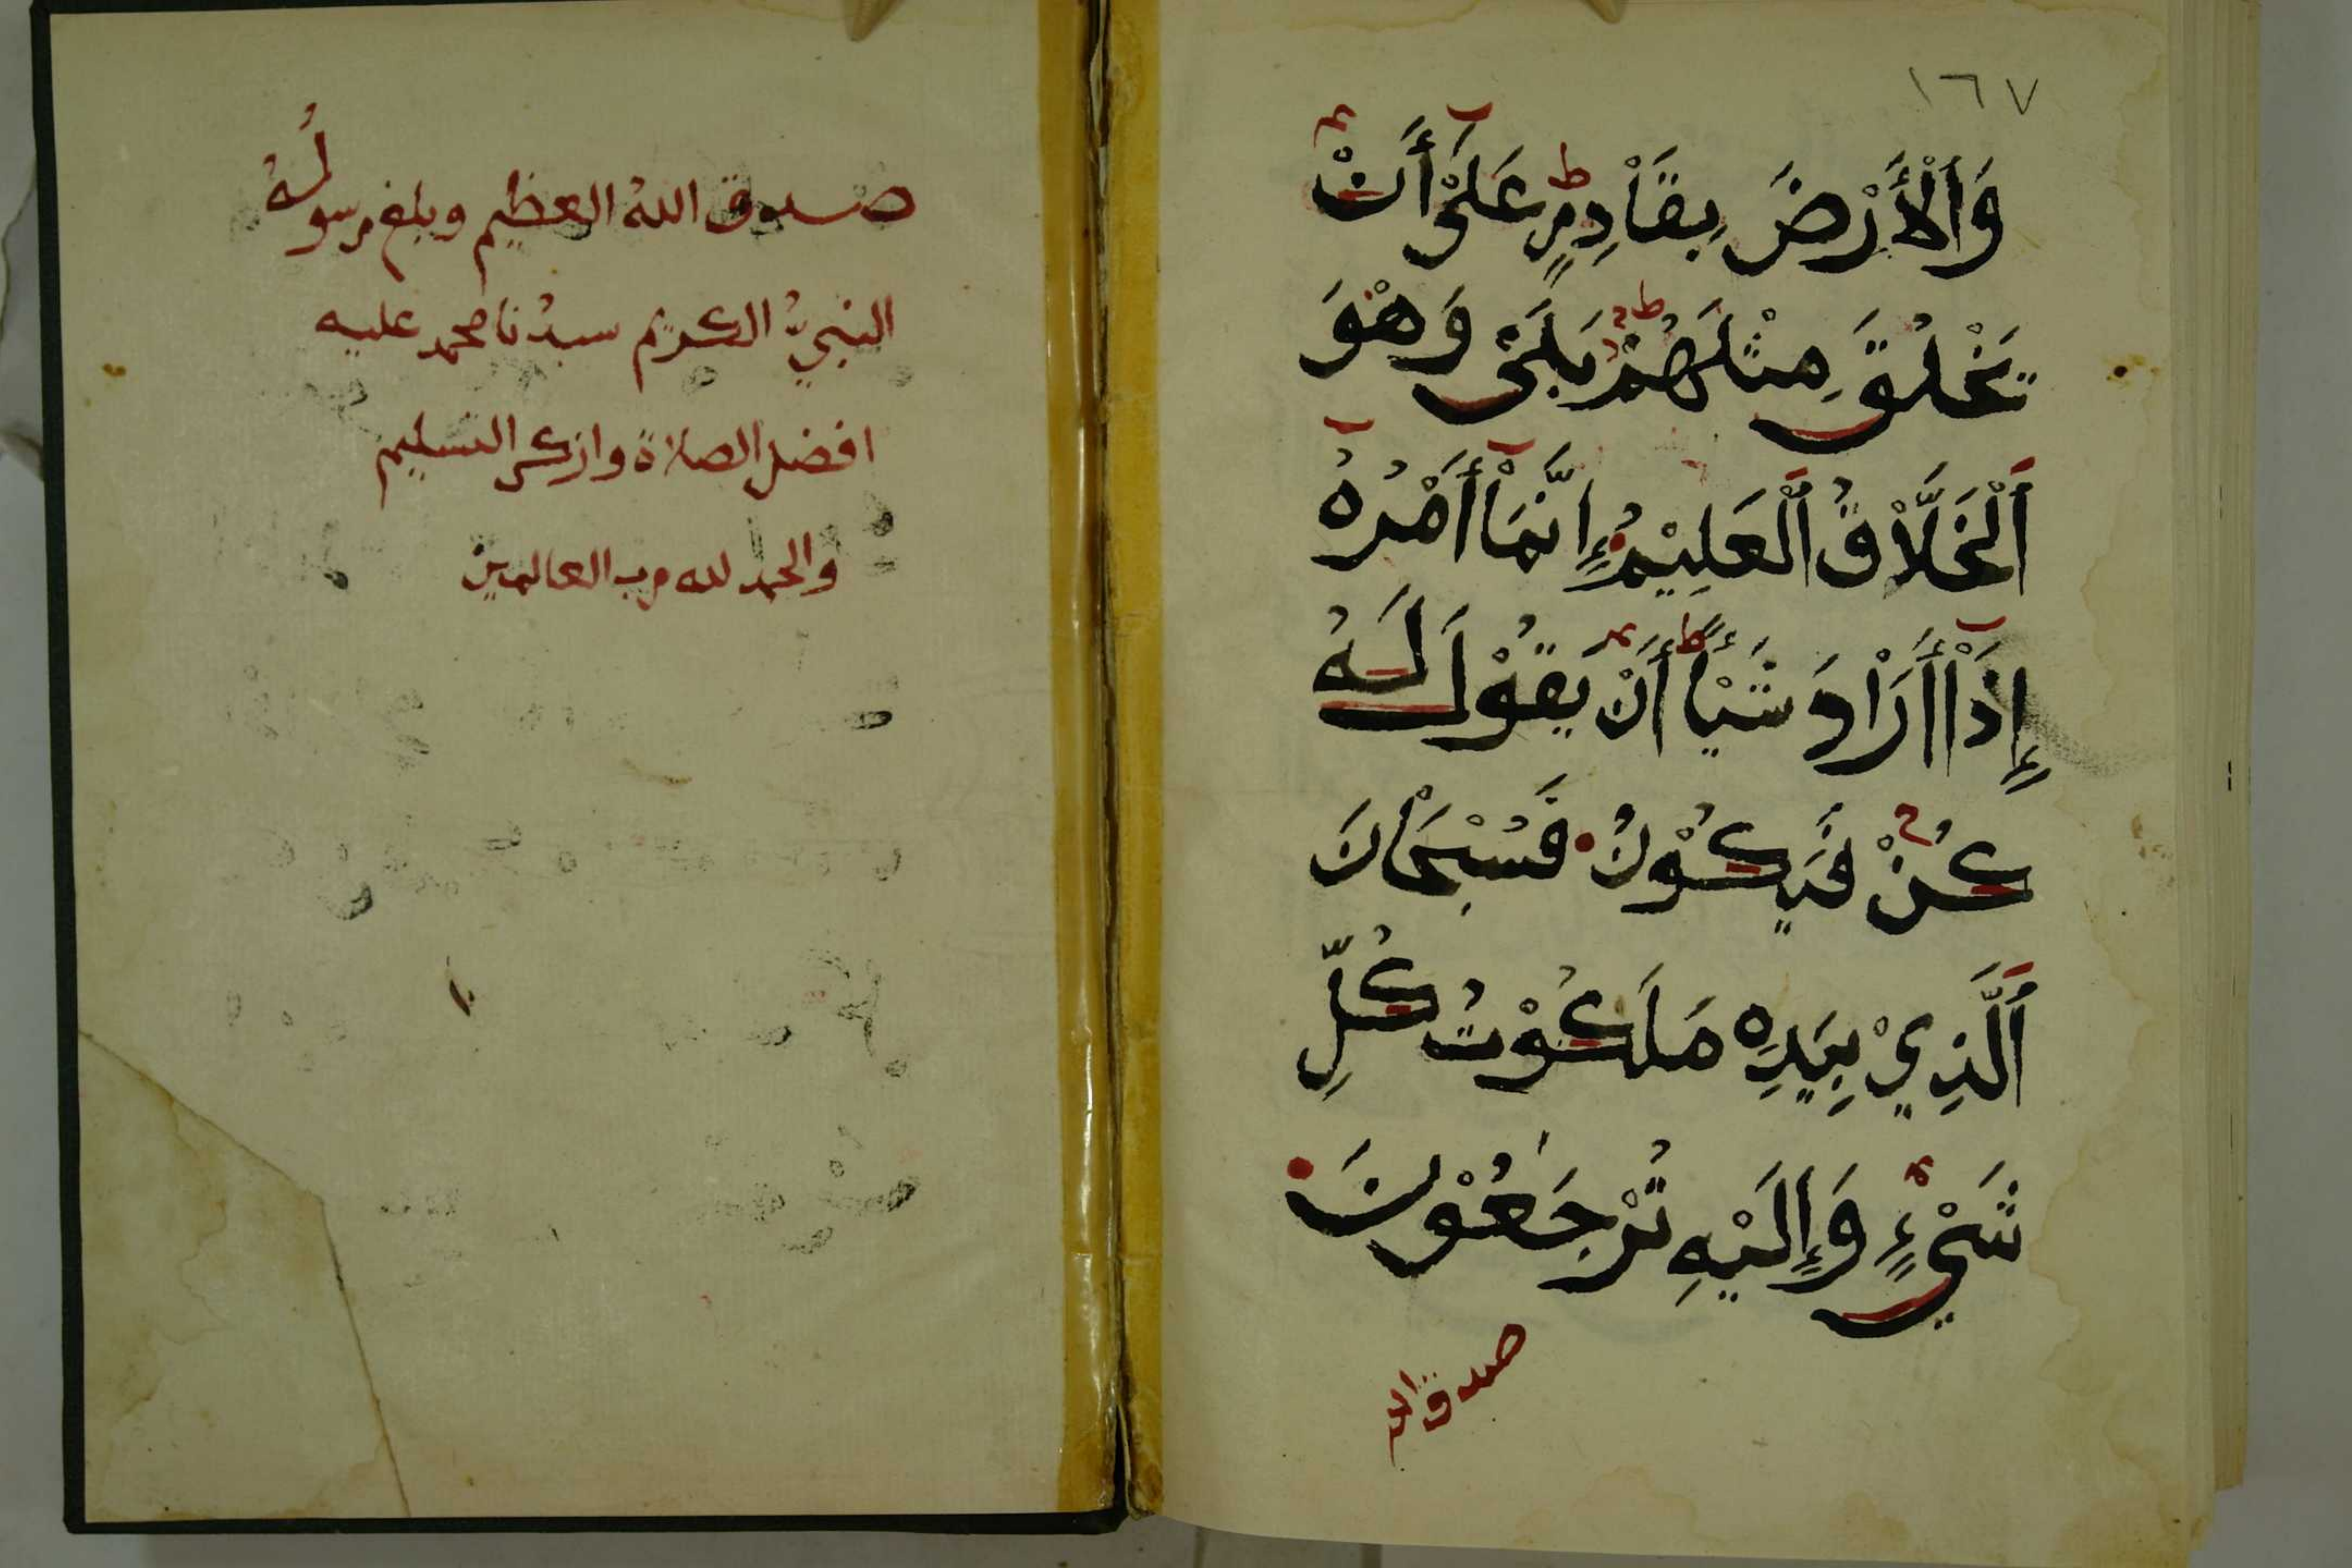 ١٦٧
وَاَلْأَرْضَ بِقَاْدِرٍ عَلَىْ أَنْ
يَخْلُقَ مِثْلَهُمْ بَلَىْ وَهْوَ
اَلْخَلَّاْقُ اُلْعَلِيْمُ إِنَّمَاْ أَمْرُهُ
إِذَاْ أَرَاْدَ شَيْأً أَنْ يَقُوْلَ لَهُ
كُنْ فَيَكُوْنُ فَسُبْحَاْنَ
اَلَّذِيْ بِيَدِهِ مَلَكُوْتُ كُلِّ
شَيْءٍ وَإِلَيْهِ تُرْجَعُوْنَ
صدق الله
صدق اللهُ العظيم وبلغ رسولُهُ
النبيُّ الكريم سيدُنا محمد عليه
افضل الصلاة وازكى التسليم
والحمد لله رب العالمين